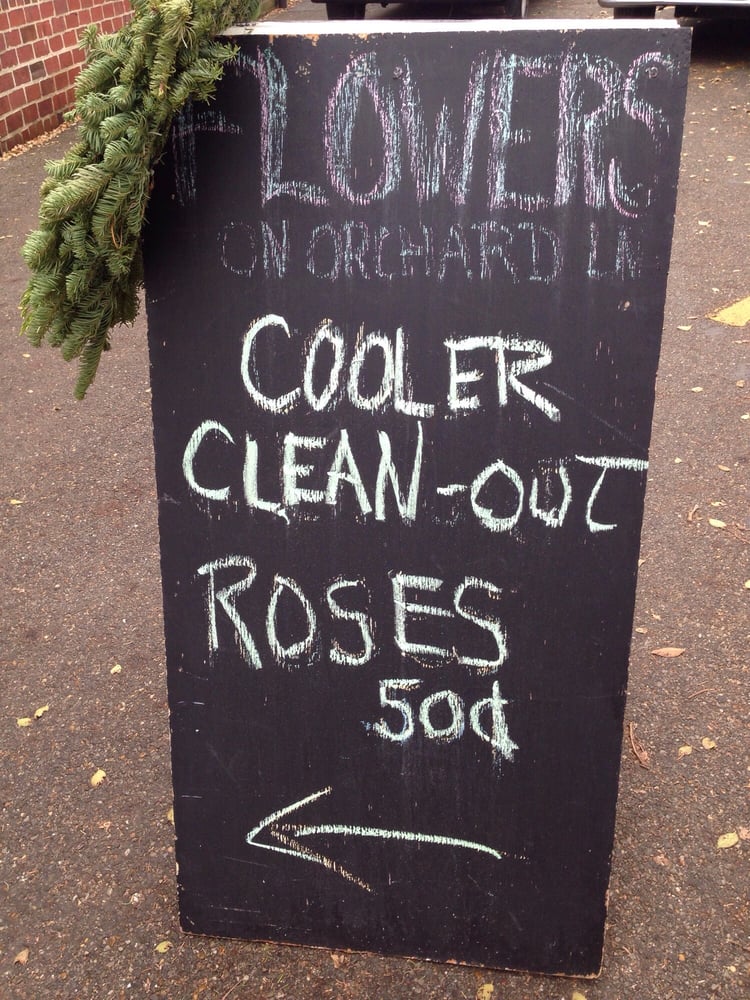 FLOWERS
ON ORCHARD LN
COOLER
CLEAN-OUT
ROSES
50¢